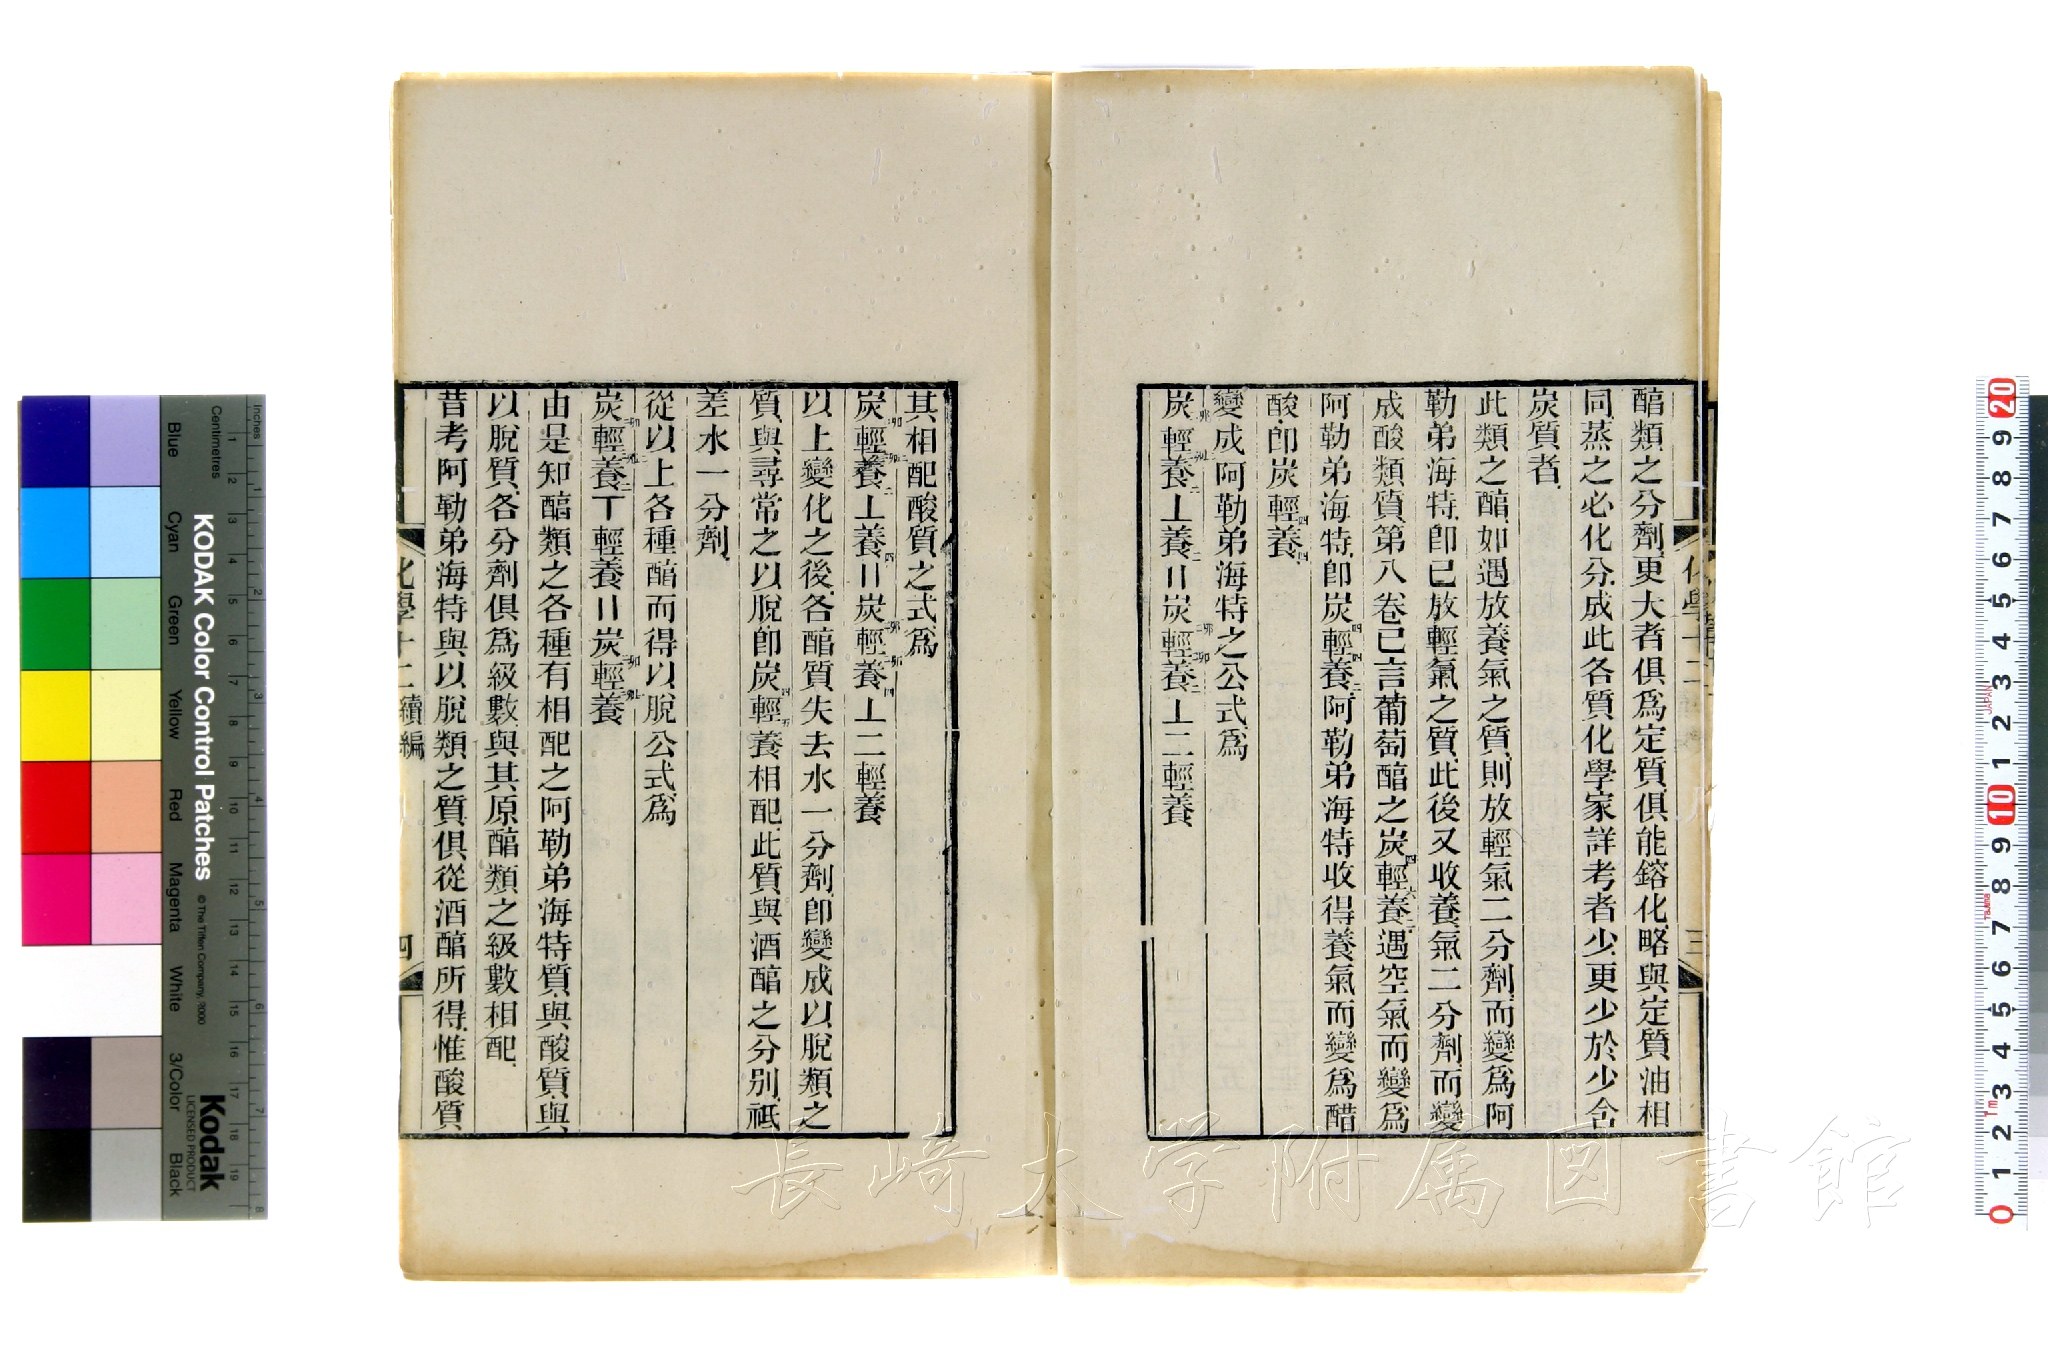 醕類之分劑更大者俱爲定質俱能鎔化略與定質油相
同蒸之必化分成此各質化學家詳考者少更少於少含
炭質者
此類之醕如遇放養氣之質則放輕氣二分劑而變爲阿
勒弟海特卽已放輕氣之質此後又收養氣二分劑而變
成酸類質第八卷已言葡萄醕之炭四輕六養二遇空氣而變爲
阿勒弟海特卽炭四輕四養二阿勒弟海特收得養氣而變爲醋
酸卽炭四輕四養四
變成阿勒弟海特之公式爲
炭輕養二⊥養二〢炭輕養二⊥二輕養
化學十二
三
其相配酸質之式爲
炭輕養二⊥養四〢炭輕養四⊥二輕養
以上變化之後各醕質失去水一分劑卽變成以脫類之
質與尋常之以脫卽炭四輕五養相配此質與酒醕之分別祇
差水一分劑
從以上各種醕而得以脫公式爲
炭輕養二⊤輕養〢炭輕養
由是知醕類之各種有相配之阿勒弟海特質與酸質與
以脫質各分劑俱爲級數與其原醕類之級數相配
昔考阿勒弟海特與以脫類之質俱從酒醕所得惟酸質
化學十二 續編
四
KODAK Color Control Patches
© The Tiffen Company, 2000
Kodak
LICENSED PRODUCT
Inches
Centimetres
Blue
Cyan
Green
Yellow
Red
Magenta
White
3/Color
Black
長崎大学附属図書館